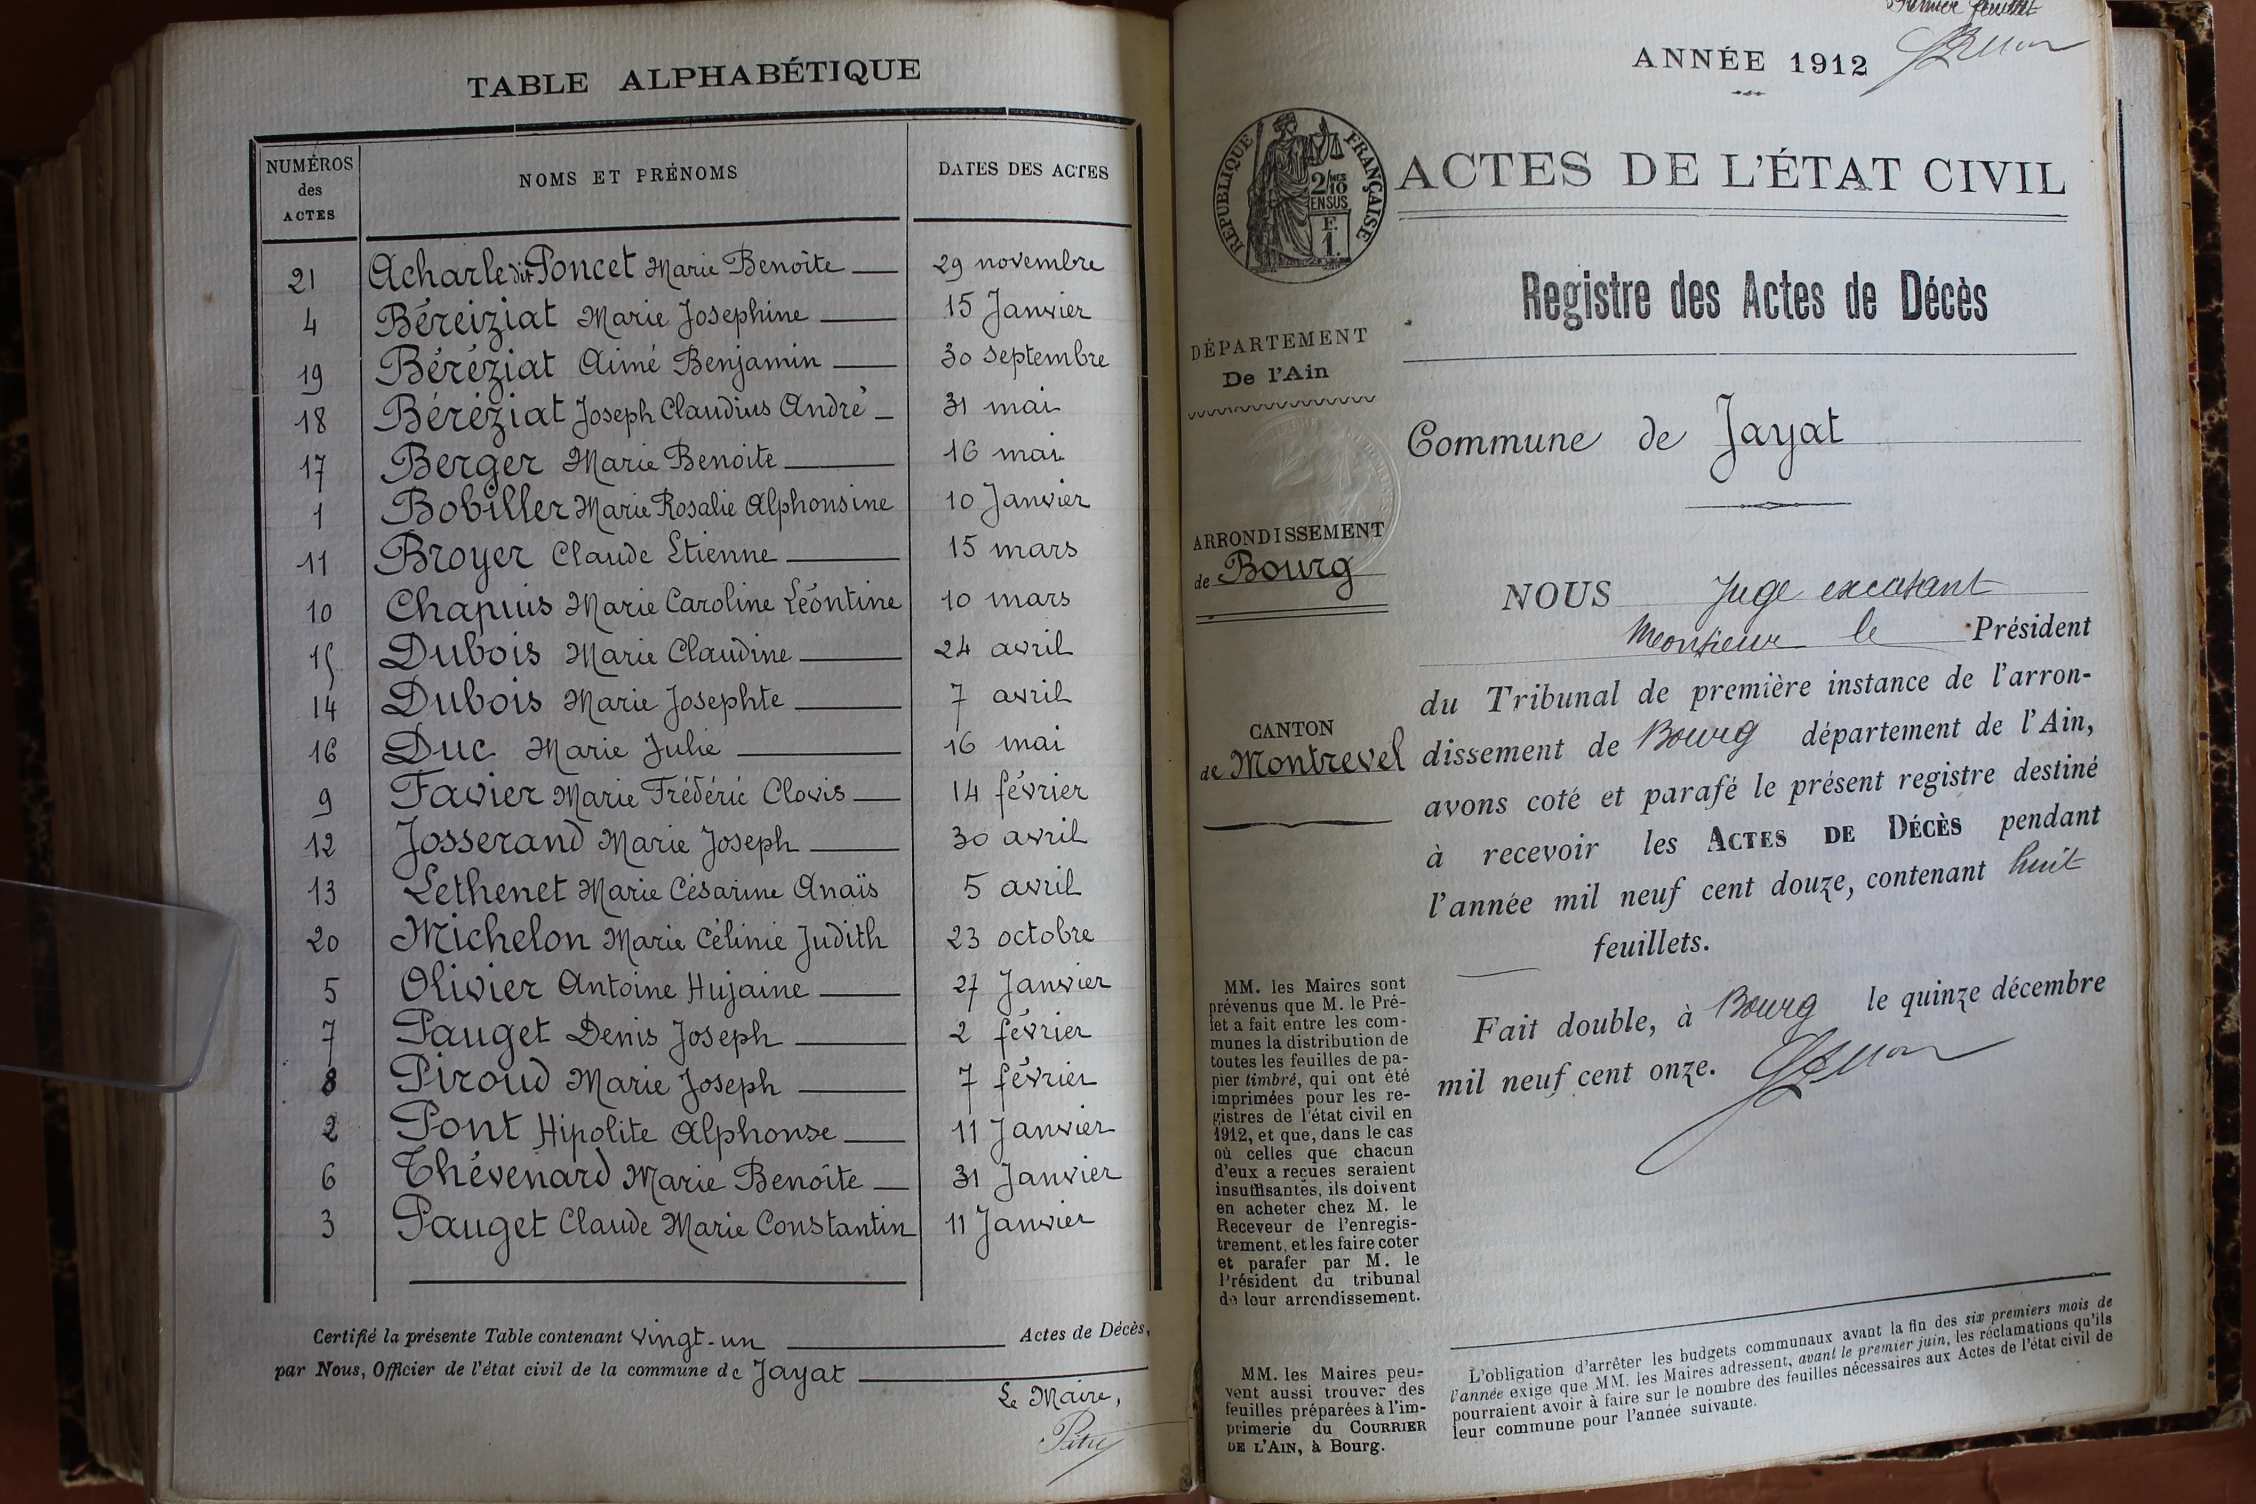 TABLE ALPHABÉTIQUE
NUMÉROS des ACTES NOMS ET PRÉNOMS DATES DES ACTES
21 Acharle dit Poncet Marie Benoîte 29 novembre
4 Béreiziat Marie Josephine 15 Janvier
19 Béréziat Aimé Benjamin 30 septembre
18 Béréziat Joseph Claudius André 31 mai
17 Berger Marie Benoite 16 mai
1 Bobiller Marie Rosalie Alphonsine 10 Janvier
11 Broyer Claude Etienne 15 mars
10 Chapuis Marie Caroline Léontine 10 mars
15 Dubois Marie Claudine 24 avril
14 Dubois Marie Josephte 7 avril
16 Duc Marie Julie 16 mai
9 Favier Marie Frédéric Clovis 14 février
12 Josserand Marie Joseph 30 avril
13 Lethenet Marie Césarine Anaïs 5 avril
20 Michelon Marie Célinie Judith 23 octobre
5 Olivier Antoine Hujaine 27 Janvier
7 Pauget Denis Joseph 2 février
8 Piroud Marie Joseph 7 février
2 Pont Hipolite Alphonse 11 Janvier
6 Thévenard Marie Benoîte 31 Janvier
3 Pauget Claude Marie Constantin 11 Janvier
Certifié la présente Table contenant vingt-un Actes de Décès,
par Nous, Officier de l'état civil de la commune de Jayat
Le Maire,
Premier feuillet
ANNÉE 1912
RÉPUBLIQUE FRANÇAISE
2/10 EN SUS
F. 1.
ACTES DE L'ÉTAT CIVIL
Registre des Actes de Décès
DÉPARTEMENT
De l'Ain
Commune de Jayat
ARRONDISSEMENT
de Bourg
CANTON
de Montrevel
NOUS Juge excusant
Monsieur le Président
du Tribunal de première instance de l'arron-
dissement de Bourg département de l'Ain,
avons coté et parafé le présent registre destiné
à recevoir les ACTES DE DÉCÈS pendant
l'année mil neuf cent douze, contenant huit
feuillets.
Fait double, à Bourg le quinze décembre
mil neuf cent onze.
MM. les Maires sont
prévenus que M. le Pré-
fet a fait entre les com-
munes la distribution de
toutes les feuilles de pa-
pier timbré, qui ont été
imprimées pour les re-
gistres de l'état civil en
1912, et que, dans le cas
où celles que chacun
d'eux a reçues seraient
insuffisantes, ils doivent
en acheter chez M. le
Receveur de l'enregis-
trement, et les faire coter
et parafer par M. le
Président du tribunal
de leur arrondissement.
MM. les Maires peu-
vent aussi trouver des
feuilles préparées à l'im-
primerie du COURRIER
DE L'AIN, à Bourg.
L'obligation d'arrêter les budgets communaux avant la fin des six premiers mois de
l'année exige que MM. les Maires adressent, avant le premier juin, les réclamations qu'ils
pourraient avoir à faire sur le nombre des feuilles nécessaires aux Actes de l'état civil de
leur commune pour l'année suivante.